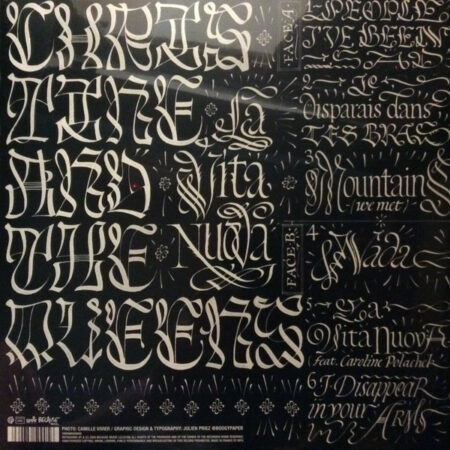 CHRIS
TINE
AND
THE
QUEENS
La
Vita
Nuova
FACE A
1 PEOPLE
I'VE BEEN
SAD
2 Je
Disparais dans
TES BRAS
3
Mountains
(we met)
FACE B
4 Nada
5 La
Vita Nuova
Feat. Caroline Polachek
6 I Disappear
in your
ARMS
BECAUSE
PHOTO: CAMILLE VIVIER / GRAPHIC DESIGN & TYPOGRAPHY: JULIEN PRIEZ @BOOGYPAPER